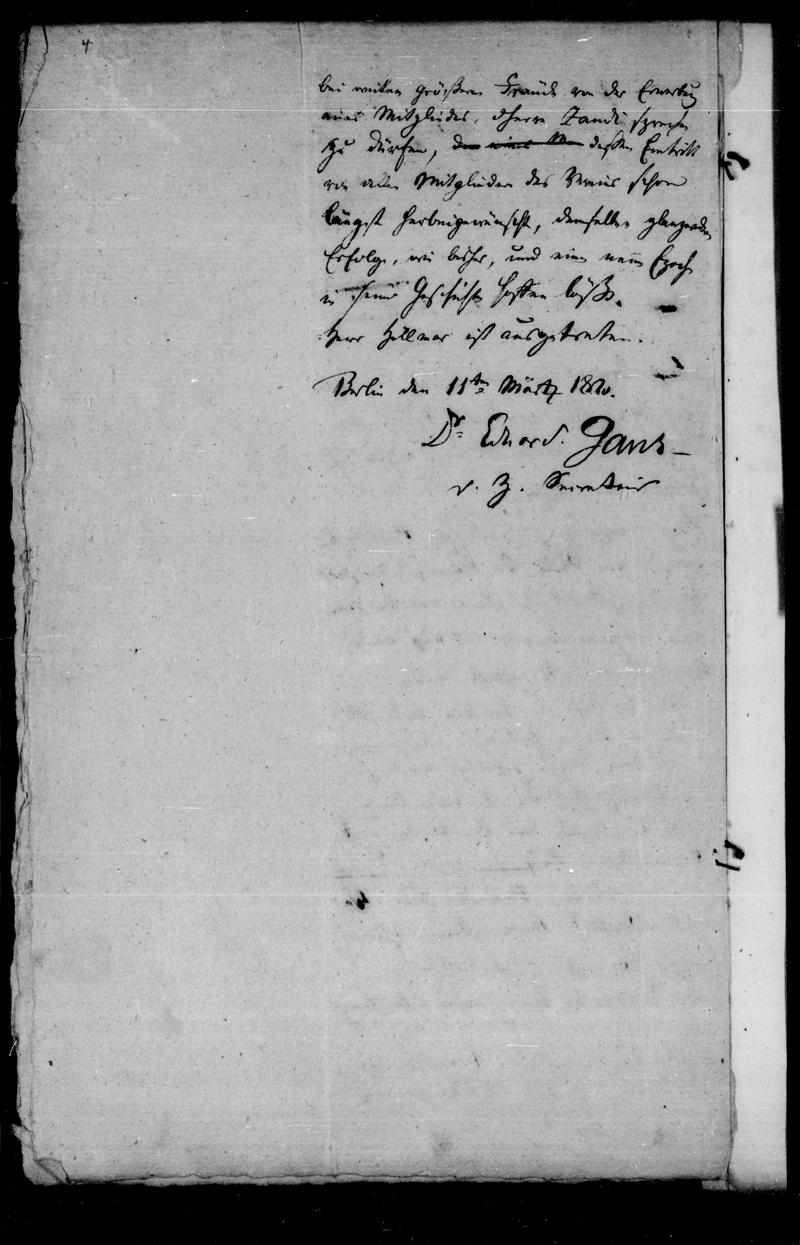 4
bei weiten größere Freude von der Erwerbung
eines Mitgliedes, Herrn Zunz sprechen
zu dürfen, dessen Eintritt
von allen Mitgliedern des Vereins schon
längst herbeigewünscht, denselben glanzvollen
Erfolge, wie bisher, und eine neue Epoche
in seine Geschichte hoffen läßt.
Herr Hillmar ist ausgetreten.
Berlin den 11ten Märtz 1820.
Dr Eduard. Gans
d. Z. Secretair